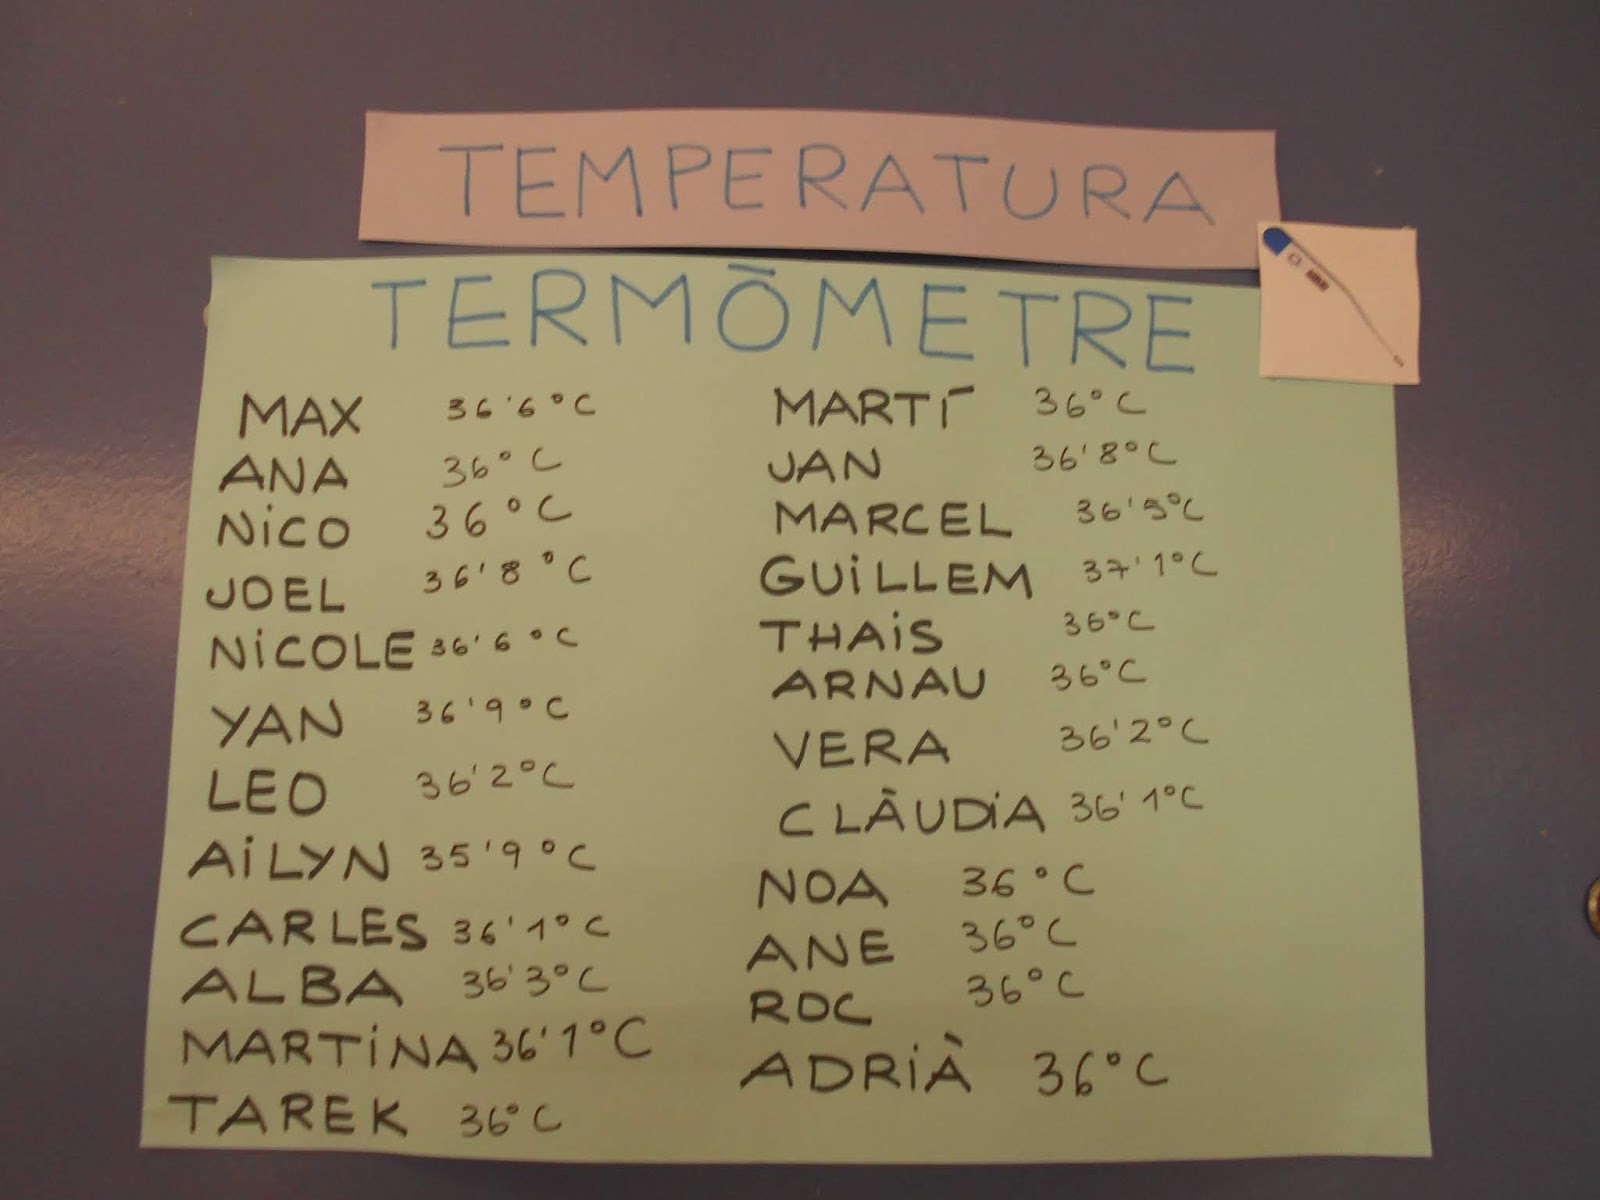 TEMPERATURA
TERMÒMETRE
MAX 36'6°C
ANA 36°C
NiCO 36°C
JOEL 36'8°C
NiCOLE 36'6°C
YAN 36'9°C
LEO 36'2°C
AiLYN 35'9°C
CARLES 36'1°C
ALBA 36'3°C
MARTiNA 36'1°C
TAREK 36°C
MARTÍ 36°C
JAN 36'8°C
MARCEL 36'5°C
GUiLLEM 37'1°C
THAiS 36°C
ARNAU 36°C
VERA 36'2°C
CLÀUDiA 36'1°C
NOA 36°C
ANE 36°C
ROC 36°C
ADRiÀ 36°C